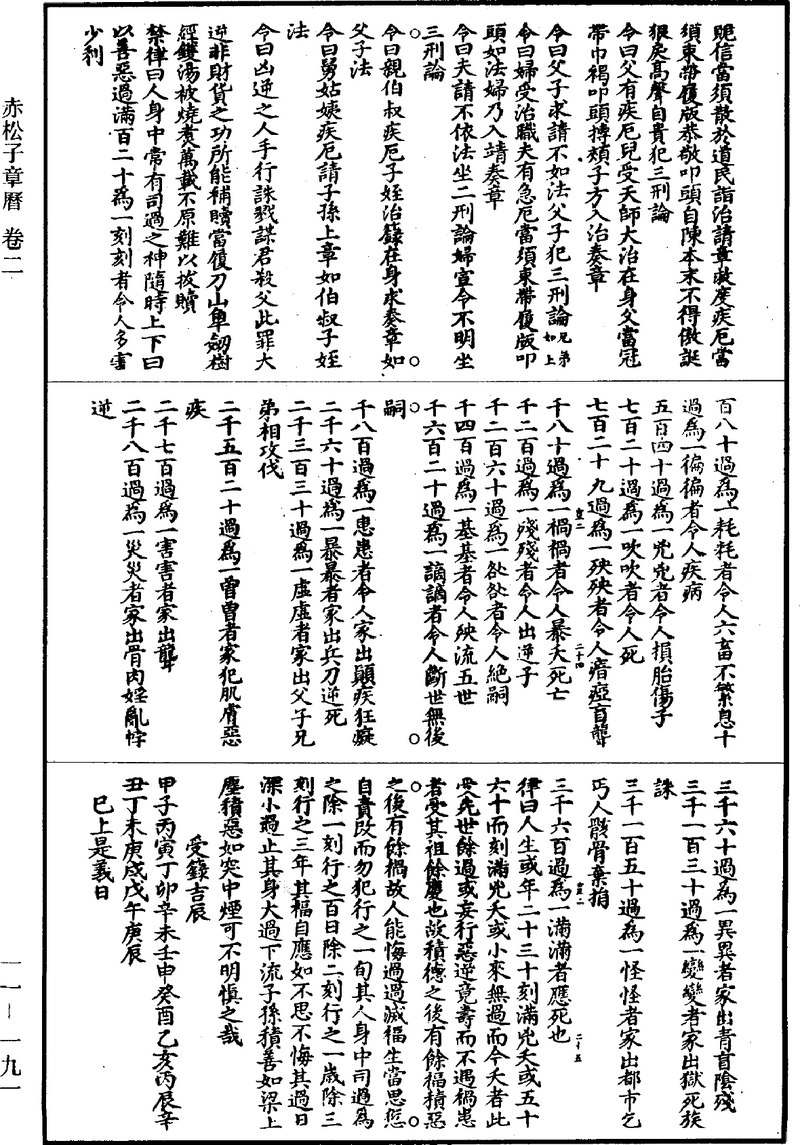 賝信當須散於道民詣治請章救度疾厄當
須束帶履版恭敬叩頭自陳本末不得傲誕
狠戾高聲自貴犯三刑論
令曰父有疾厄兒受天師大治在身父當冠
帶巾褐叩頭搏頰子方入治奏章
令曰父子求請不如法父子犯三刑論兄弟如上
令曰婦受治職夫有急厄當須束帶履版叩
頭如法婦乃入靖奏章
令曰夫請不依法坐二刑論婦宣令不明坐
三刑論
令曰親伯叔疾厄子姪治籙在身求奏章如
父子法
令曰舅姑姨疾厄請子孫上章如伯叔子姪
法
令曰凶逆之人手行誅戮謀君殺父此罪大
逆非財貨之功所能補贖當履刀山車劒樹
經鑊湯被燒煑萬載不原難以拔贖
禁律曰人身中常有司過之神隨時上下日
以善惡過滿百二十為一刻刻者令人多害
少利
百八十過為一耗耗者令人六畜不繁息十
過為一徧徧者令人疾病
五百四十過為一兇兇者令人損胎傷子
七百二十過為一吹吹者令人死
七百二十九過為一殃殃者令人瘖瘂盲聾
千八十過為一禍禍者令人暴夭死亡
千二百過為一殘殘者令人出逆子
千二百六十過為一咎咎者令人絕嗣
千四百過為一基基者令人殃流五世
千六百二十過為一謫謫者令人斷世無後
嗣
千八百過為一患患者令人家出顛疾狂癡
二千六十過為一暴暴者家出兵刀逆死
二千三百三十過為一虛虛者家出父子兄
弟相攻伐
二千五百二十過為一曾曾者家犯肌膚惡
疾
二千七百過為一害害者家出聾
二千八百過為一災災者家出骨肉婬亂悖
逆
三千六十過為一異異者家出青盲陰殘
三千一百三十過為一變變者家出獄死族
誅
三千一百五十過為一怪怪者家出都市乞
丐人骸骨棄捐
三千六百過為一滿滿者應死也
律曰人生或年二十三十刻滿兇夭或五十
六十而刻滿兇夭或小來無過而今夭者此
受先世餘過或妄行惡逆竟壽而不遇禍患
者受其祖餘慶也故積德之後有餘福積惡
之後有餘禍故人能悔過過滅福生當思愆
自責改而勿犯行之一旬其人身中司過為
之除一刻行之百日除二刻行之一歲除三
刻行之三年其福自應如不思不悔其過日
深小過止其身大過下流子孫積善如梁上
塵積惡如突中煙可不明慎之哉
受籙吉辰
甲子丙寅丁卯辛未壬申癸酉乙亥丙辰辛
丑丁未庚戌戊午庚辰
巳上是義日
赤松子章曆 卷二
一一－一九一